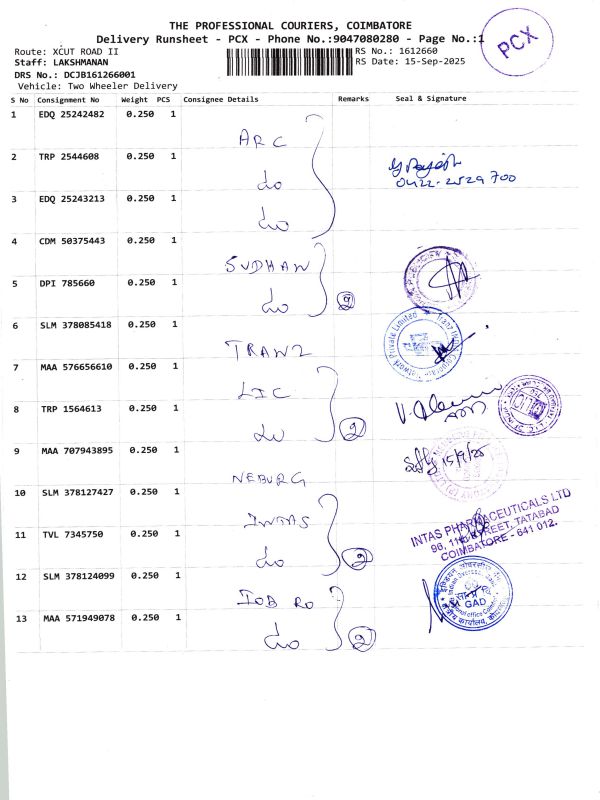 THE PROFESSIONAL COURIERS, COIMBATORE
Delivery Runsheet - PCX - Phone No.:9047080280 - Page No.:1
PCX
Route: XCUT ROAD II
RS No.: 1612660
Staff: LAKSHMANAN
RS Date: 15-Sep-2025
DRS No.: DCJB161266001
Vehicle: Two Wheeler Delivery
S No Consignment No Weight PCS Consignee Details Remarks Seal & Signature
1 EDQ 25242482 0.250 1 ARC
2 TRP 2544608 0.250 1 do
0422-2529700
3 EDQ 25243213 0.250 1 do
4 CDM 50375443 0.250 1 SUDHAN
5 DPI 785660 0.250 1 do 2
6 SLM 378085418 0.250 1 TRANZ
Network Private Limited
7 MAA 576656610 0.250 1 LIC
8 TRP 1564613 0.250 1 do 2
9 MAA 707943895 0.250 1 NEBURG
15/9/25
10 SLM 378127427 0.250 1 INTAS
11 TVL 7345750 0.250 1 do 2
INTAS PHARMACEUTICALS LTD
STREET, TATABAD
COIMBATORE - 641 012.
12 SLM 378124099 0.250 1 IOB RO
GAD
13 MAA 571949078 0.250 1 do 2